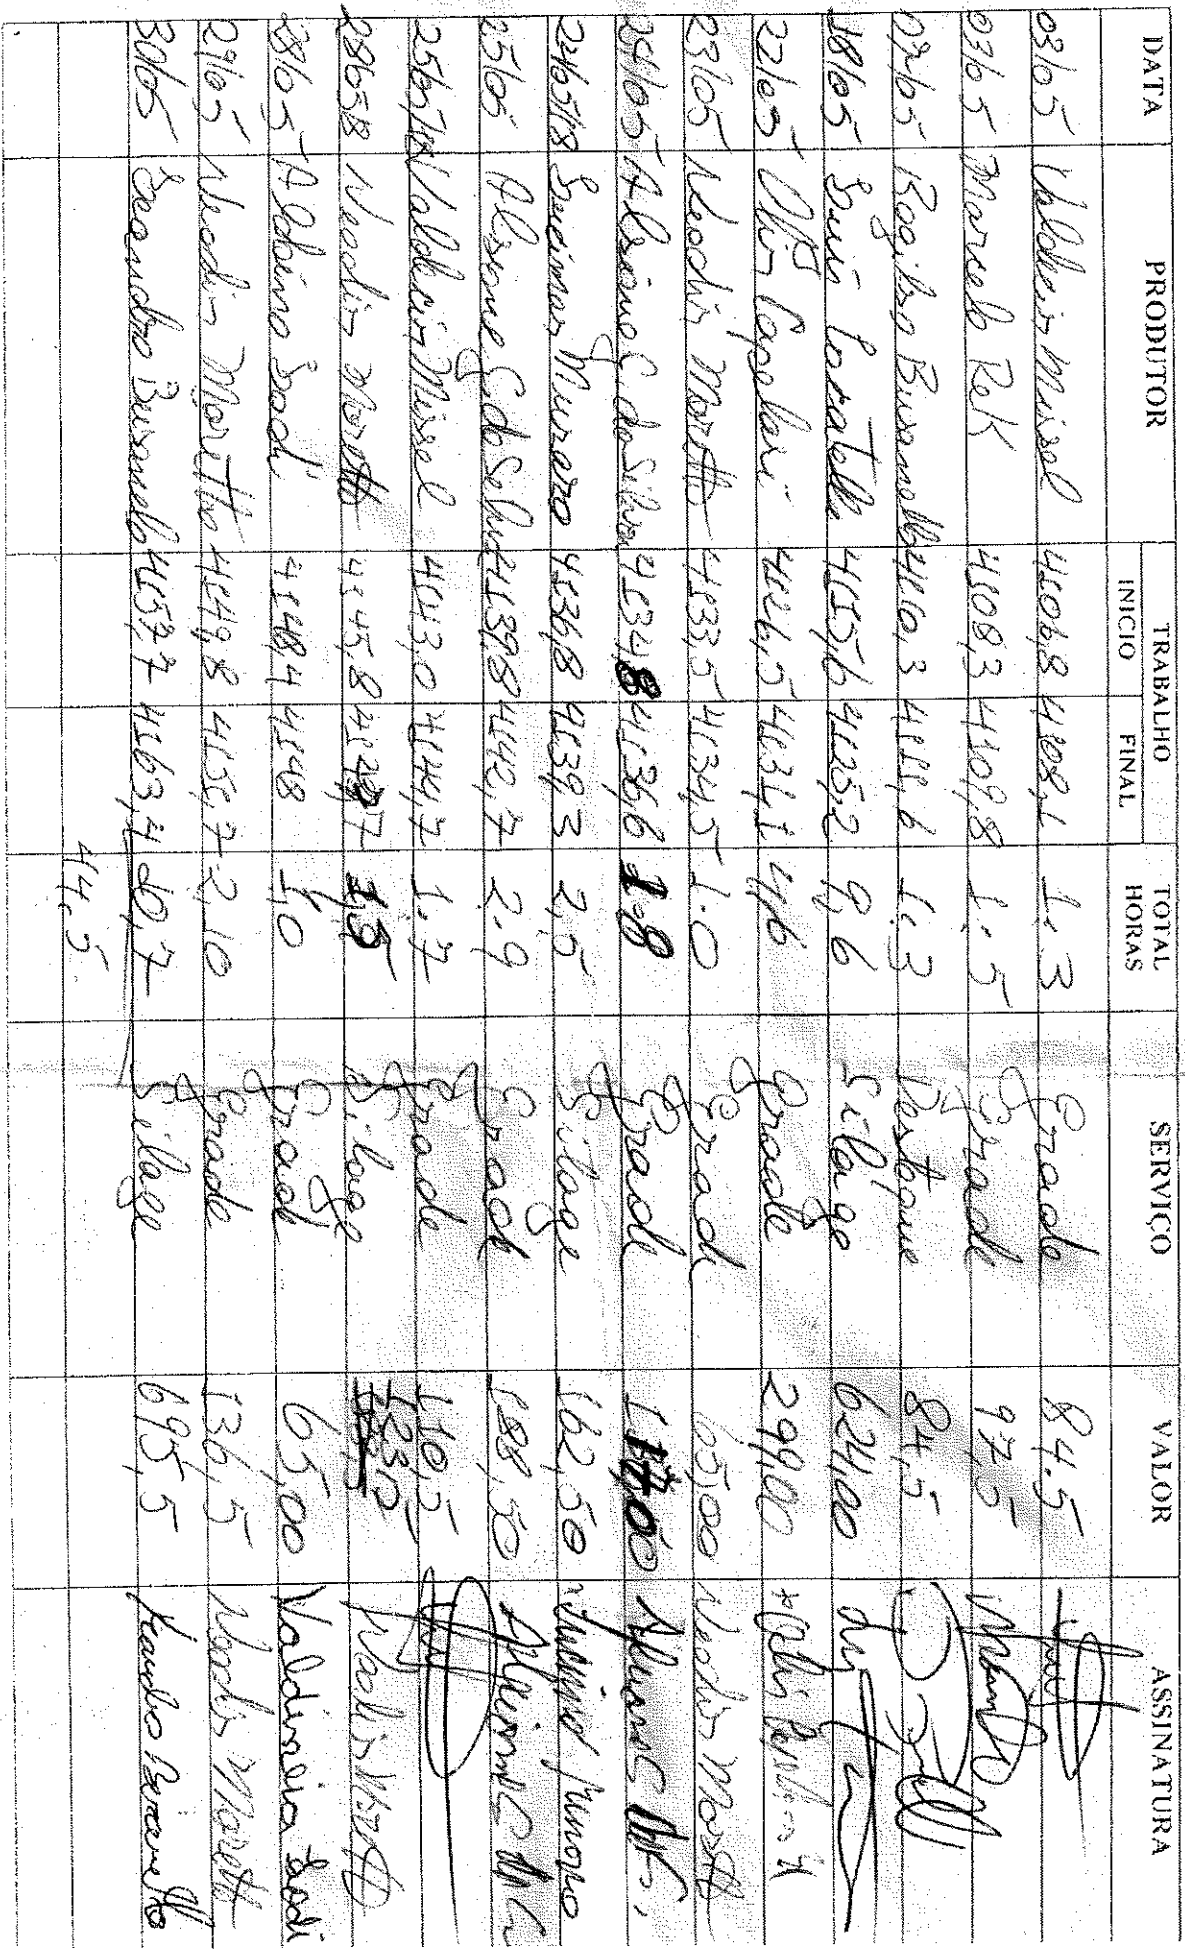 DATA PRODUTOR TRABALHO INICIO FINAL TOTAL HORAS SERVIÇO VALOR ASSINATURA
03/05 Valdecir Missel 4106,8 4108,1 1.3 Grade 84.5
03/05 Marcelo Rek 4108,3 4109,8 1.5 Grade 97,5
07/05 Rogibro Busanello 4110,3 4111,6 1.3 Destoque 84,5
18/05 Luiz 4115,6 4125,2 9,6 Silage 624,00
22/05 Olir Capelari 4126,5 4131,1 4,6 Grade 299,00
23/05 Neodir Moretto 4133,5 4134,5 1.0 Grade 65,00 Neodir Moretto
24/05 Alsione C. da Silva 4134,8 4136,6 1.8 Grade 117,00
24/05/18 Lucimar Munaro 4136,8 4139,3 2,5 Silage 162,50 Munaro
25/05 Alsione C. da Silva 4139,8 4142,7 2.9 Grade 188,50
25/05/18 Valdecir Missel 4143,0 4144,7 1.7 Grade 110,5
28/05/18 Neodir Moretto 4145,8 1,5 Silage Neodir Moretto
28/05 Albino Sodi 4148,4 4148 1,0 Grade 65,00 Valdineia Sodi
29/05 Neodir Moretto 4149,8 4151,7 2,10 Grade 136,5 Neodir Moretto
30/05 Leandro Busanello 4157,7 4163,4 10,7 Silage 695,5 Leandro Busanello
44,5